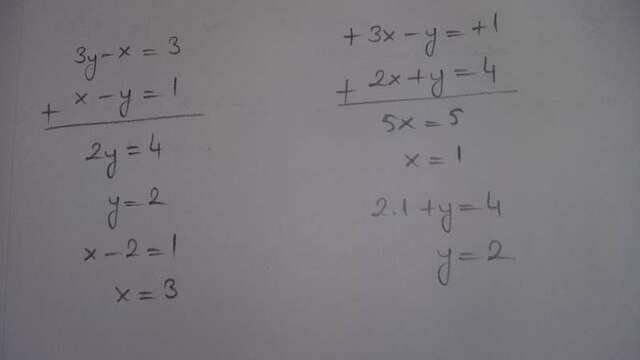 3y-x=3
+ x-y=1
2y=4
y=2
x-2=1
x=3
+3x-y=+1
+ 2x+y=4
5x=5
x=1
2.1+y=4
y=2